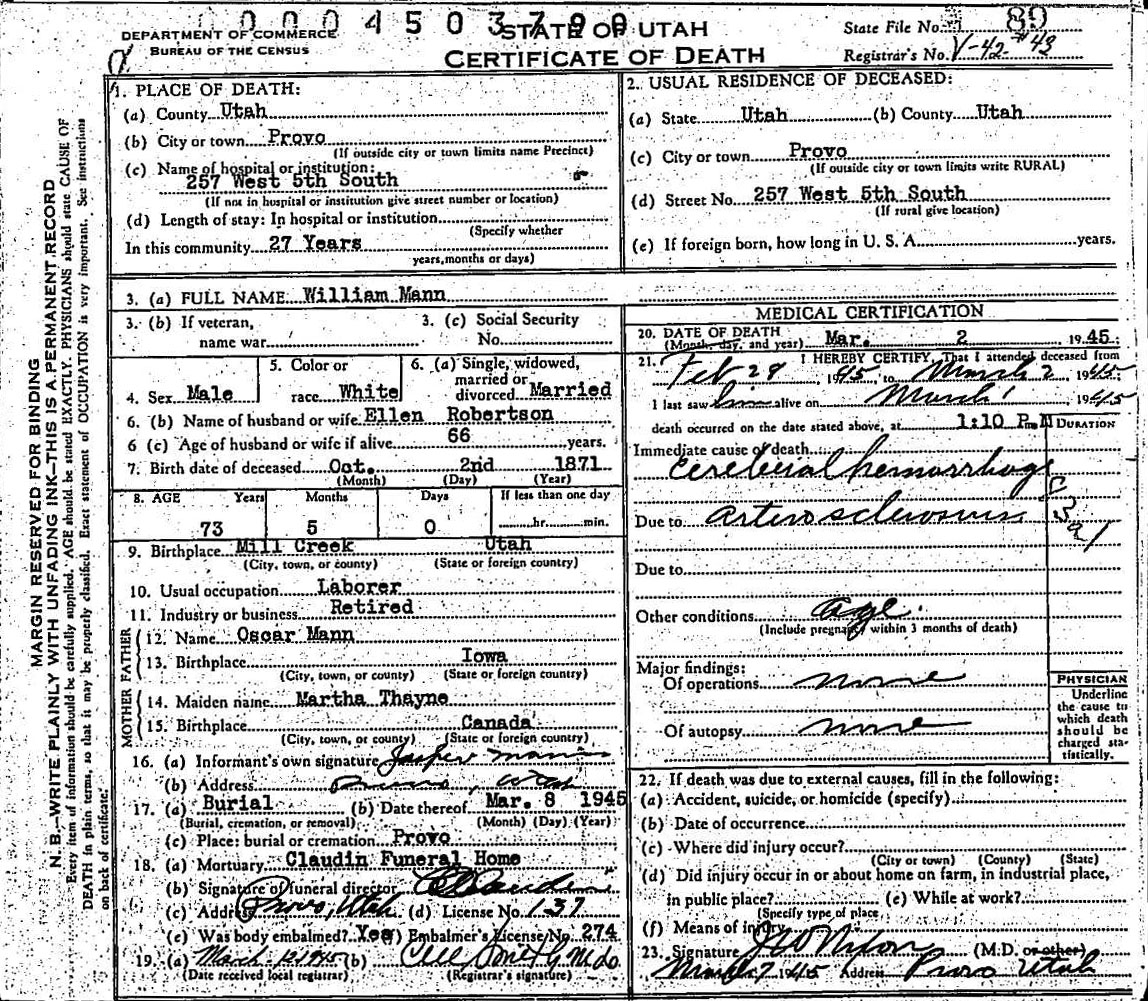 0 0 0 0 4 5 0 3 7 0 0
DEPARTMENT OF COMMERCE
BUREAU OF THE CENSUS
STATE OF UTAH
CERTIFICATE OF DEATH
State File No. 89
Registrar's No. V-42 #43
MARGIN RESERVED FOR BINDING
N. B.—WRITE PLAINLY WITH UNFADING INK—THIS IS A PERMANENT RECORD
Every item of information should be carefully supplied. AGE should be stated EXACTLY. PHYSICIANS should state CAUSE OF
DEATH in plain terms, so that it may be properly classified. Exact statement of OCCUPATION is very important. See instructions
on back of certificate.
1. PLACE OF DEATH:
(a) County Utah
(b) City or town Provo
(If outside city or town limits name Precinct)
(c) Name of hospital or institution:
257 West 5th South
(If not in hospital or institution give street number or location)
(d) Length of stay: In hospital or institution
(Specify whether
In this community 27 Years
years, months or days)
2. USUAL RESIDENCE OF DECEASED:
(a) State Utah (b) County Utah
(c) City or town Provo
(If outside city or town limits write RURAL)
(d) Street No. 257 West 5th South
(If rural give location)
(e) If foreign born, how long in U. S. A. years.
3. (a) FULL NAME William Mann
3. (b) If veteran,
name war
3. (c) Social Security
No.
4. Sex Male
5. Color or
race White
6. (a) Single, widowed,
married or
divorced Married
6. (b) Name of husband or wife Ellen Robertson
6 (c) Age of husband or wife if alive 66 years.
7. Birth date of deceased Oct. 2nd 1871
(Month) (Day) (Year)
8. AGE Years Months Days If less than one day
73 5 0 hr. min.
9. Birthplace Mill Creek Utah
(City, town, or county) (State or foreign country)
10. Usual occupation Laborer
11. Industry or business Retired
FATHER
12. Name Oscar Mann
13. Birthplace Iowa
(City, town, or county) (State or foreign country)
MOTHER
14. Maiden name Martha Thayne
15. Birthplace Canada
(City, town, or county) (State or foreign country)
16. (a) Informant's own signature Jasper Mann
(b) Address Provo, Utah
17. (a) Burial (b) Date thereof Mar. 8 1945
(Burial, cremation, or removal) (Month) (Day) (Year)
(c) Place: burial or cremation Provo
18. (a) Mortuary Claudin Funeral Home
(b) Signature of funeral director
(c) Address Provo, Utah (d) License No. 137
(e) Was body embalmed? Yes (f) Embalmer's License No. 274
19. (a) March 1945 (b)
(Date received local registrar) (Registrar's signature)
MEDICAL CERTIFICATION
20. DATE OF DEATH
(Month, day, and year) Mar. 2 1945
21. I HEREBY CERTIFY, That I attended deceased from
Feb 28 1945 to March 2 1945
I last saw him alive on March 1 1945
death occurred on the date stated above, at 1:10 P.m.
DURATION
Immediate cause of death
Cerebral hemorrhage
Due to arterosclerosis
Due to
Other conditions age
(Include pregnancy within 3 months of death)
Major findings:
Of operations none
Of autopsy none
PHYSICIAN
Underline
the cause to
which death
should be
charged sta-
tistically.
22. If death was due to external causes, fill in the following:
(a) Accident, suicide, or homicide (specify)
(b) Date of occurrence
(c) Where did injury occur?
(City or town) (County) (State)
(d) Did injury occur in or about home on farm, in industrial place,
in public place? (e) While at work?
(Specify type of place)
(f) Means of injury
23. Signature J W Nixon (M.D. or other)
March 7 1945 Address Provo Utah